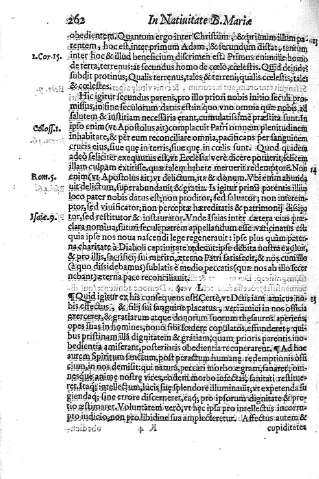 262 In Natiuitate B. Mariæ
obedientem. Quantum ergo inter Christum, & primum illum pa-
rentem, hoc est, inter primum Adam, & secundum distat, tantum
1.Cor.15. inter hoc & illud beneficium discrimen est. Primus enim de homo
de terra, terrenus: at secundus homo de cœlo, cœlestis. Quid deinde
subdit protinus, Qualis terrenus, tales & terreni; qualis cœlestis, tales
& cœlestes.
Hic igitur secundus parens, pro illo priori nobis initio seculi pro-
missus, in fine seculorum datus est: in quo vno omnia quæ nobis ad
salutem & iustitiam necessaria erant, cumulatissimè præstita sunt. In
Coloss.1. ipso enim (vt Apostolus ait) complacuit Patri omnem plenitudinem
inhabitare, & per eum reconciliare omnia, pacificans per sanguinem
crucis eius, siue quæ in terris, siue quæ in cœlis sunt. Quod quidem
adeò feliciter exequutus est, vt Ecclesia verè dicere potuerit, felicem
illam culpam extitisse, quæ talem habere meruerit redemptorem. Non
Rom.5. enim (vt Apostolus ait) vt delictum, ita & donum. Vbi enim abunda-
uit delictum, superabundauit & gratia. Is igitur primi parentis illius
loco pater nobis datus est; non proditor, sed saluator; non interem-
ptor, sed viuificator, non perceptæ hæreditatis & patrimonij dissipa-
Isaiæ.9. tor, sed restitutor & instaurator. Vnde Isaias inter cætera eius præ-
clara nomina, futuri seculi patrem appellandum esse vaticinatus est:
quia ipse nos noua nascendi lege regenerauit: ipse plus quàm pater-
na charitate à Diaboli captiuitate redemit: ipse debita nostra exoluit,
& pro illis, sacrificij sui merito, æterno Patri satisfecit, & nos cum illo
(è quo dissidebamus) sublatis è medio peccatis (quæ nos ab illo secer-
nebant) æterna pace reconciliauit.
§. I.
¶ Quid igitur ex his consequens est? Certè, vt Deus iam amicus no-
bis effectus, & filij sui sanguine placatus, veram iam in nos officia
exerceret, & gratiarum atque donorum suorum thesauros aperiens,
opes suas in homines, nouo sibi fœdere copulatos, effunderet; quibus
pristinam illi dignitatem & gratiam; quam prioris parentis ino-
bedientia amiserant, posterioris obedientia recuperarent. ¶ Ad hoc
autem Spiritum sanctum, post peractum humanæ redemptionis offi-
cium, in nos demisit: qui naturæ, peccati morbo ægram, sanaret; om-
nesque animæ nostræ vires, eodem morbo infectas, sanitati restitue-
ret. Itaque intellectum, lucis suæ splendore illuminauit, vt expetenda fu-
giendaque; sine errore discerneret, eaque, pro ipsorum dignitate & pre-
tio æstimaret. Voluntatem verò, vt hæc ipsa pro intellectus incorru-
pto iudicio, non pro libidine sua amplecteretur. Affectus autem &
cupiditates